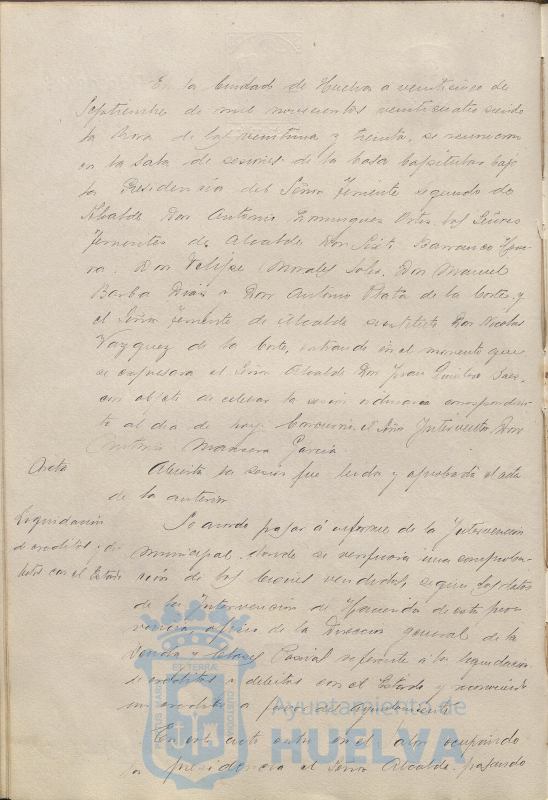 En la Ciudad de Huelva a veinticinco de
Septiembre de mil novecientos veinticuatro siendo
la hora de las veintiuna y treinta, se reunieron
en la Sala de sesiones de la Casa Capitular bajo
la Presidencia del Señor Teniente segundo de
Alcalde Don Antonio Dominguez Ortiz, los Señores
Tenientes de Alcalde Don Barranco
Don Felipe Morales Don Manuel
Barba Diaz y Don Antonio Plata de la Corte y
el Señor Teniente de Alcalde sustituto Don Nicolas
Vazquez de la Corte, entrando en el momento que
se expresara el Señor Alcalde Don Juan
con objeto de celebrar la sesión ordinaria correspondien-
te al dia de hoy. Concurrió el Señor Interventor Don
Antonio Garcia
Acta
Abierta la sesion fue leida y aprobada el acta
de la anterior
Liquidación
de creditos y dé-
bitos con el Estado
Se acordo pasar á informe de la Intervención
municipal donde se verificara una comproba-
ción de los vendidos, segun los datos
de la Intervención de Hacienda de esta pro-
vincia, oficio de la Dirección general de la
Deuda y Clases Pasivas referente á la liquidacion
de creditos y debitos con el Estado y
a favor del Ayuntamiento
En este acto entra en el salon ocupando
la presidencia el Señor Alcalde, pasando
PORTUS MARIS
ET TERRÆ
CUSTODIA
Ayuntamiento de
HUELVA